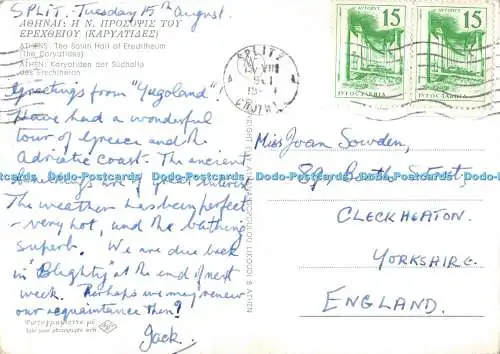 SPLIT. Tuesday 15th August.
ΑΘΗΝΑΙ: Η Ν. ΠΡΟΣΟΨΙΣ ΤΟΥ
ΕΡΕΧΘΕΙΟΥ (ΚΑΡΥΑΤΙΔΕΣ)
ATHENS: The South Hall of Erechtheum
(The Caryatides)
ATHEN: Karyatiden der Südhalle
des Erechtheion
Greetings from "Yugoland".
Have had a wonderful
tour of Greece and the
Adriatic Coast. The ancient
are of great interest
The weather has been perfect
- very hot, and the bathing
superb. We are due back
in "Blighty" at the end of next
week. Perhaps we may renew
our acquaintance then?
Jack.
Φωτογραφῆστε μέ
SPLIT
VIII
15
ЈУГОСЛАВИЈА
JUGOSLAVIJA
15
ЈУГОСЛАВИЈА
JUGOSLAVIJA
Miss Joan Sowden,
Street,
CLECKHEATON.
YORKSHIRE.
ENGLAND.
Dodo-Postcards Dodo-Postcards Dodo-Postcards Dodo-Postcards